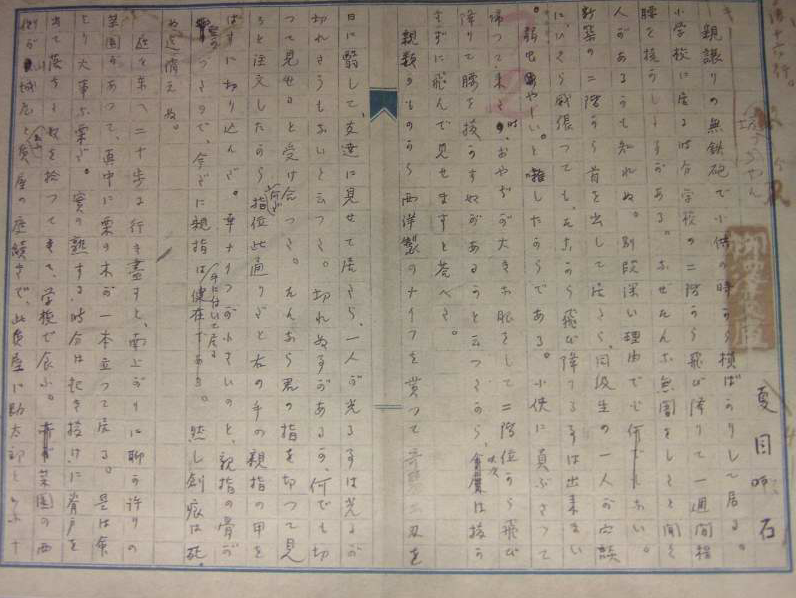 坊っちやん
夏目漱石
親譲りの無鉄砲で小供の時から損ばかりして居る。
小学校に居る時分学校の二階から飛び降りて一週間程
腰を抜かした事がある。なぜそんな無闇をしたと聞く
人があるかも知れぬ。別段深い理由でも何でもない。
新築の二階から首を出して居たら、同級生の一人が冗談
に、いくら威張つても、そこから飛び降りる事は出来まい
。弱虫やーい。と囃したからである。小使に負ぶさつて
帰つて来た時、おやぢが大きな眼をして二階位から飛び
降りて腰を抜かす奴があるかと云つたから、此次は抜か
さずに飛んで見せますと答へた。
親類のものから西洋製のナイフを貰つて奇麗な刃を
日に翳して、友達に見せて居たら、一人が光る事は光るが
切れさうもないと云つた。切れぬ事があるか、何でも切
つて見せると受け合つた。そんなら君の指を切つて見
ろと注文したから何だ指位此通りだと右の手の親指の甲を
はすに切り込んだ。幸ナイフが小さいのと、親指の骨が
堅かつたので、今だに親指は手に付いて居る。然し創痕は死
ぬ迄消えぬ。
庭を東へ二十歩に行き尽すと、南上がりに聊か許りの
菜園があつて、真中に栗の木が一本立つて居る。是は命
より大事な栗だ。実の熟する時分は起き抜けに脊戸を
出て落ちた奴を拾つてきて、学校で食ふ。菜園の西
側が山城屋と云ふ質屋の庭続きで、此質屋に勘太郎といふ十